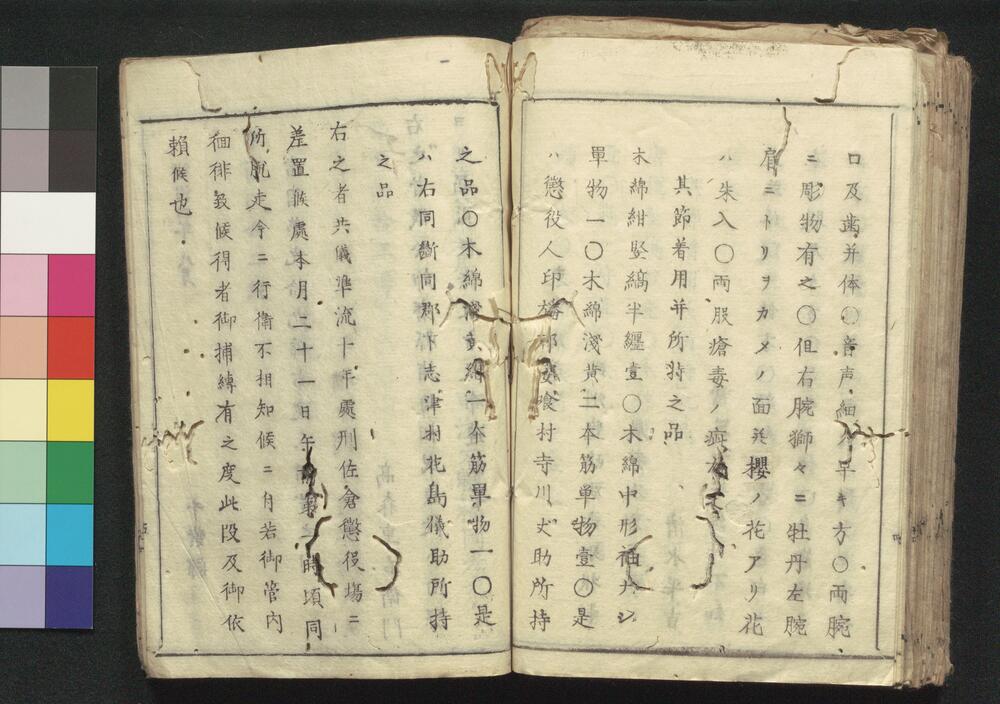 口及歯并体〇音声細ク早キ方〇両腕
ニ彫物有之〇但右腕獅々ニ牡丹左腕
肩ニトリヲカメノ面并櫻ノ花アリ花
ハ朱入〇両股瘡毒ノ
其節着用并所持之品
木綿紺竪縞半纒壹〇木綿中形袖ナシ
單物一〇木綿淺黄二本筋単物壹〇是
ハ懲役人印旛郡飯喰村寺川丈助所持
之品〇木綿淺黄縞一本筋單物一〇是
ハ右同斷同郡下志津村花島儀助所持
之品
右之者共儀準流十年處刑佐倉懲役場ニ
差置候處本月二十一日午第時頃同
所脱走今ニ行衛不相知候ニ付若御管内
徊徘致候得者御捕縛有之度此段及御依
頼候也